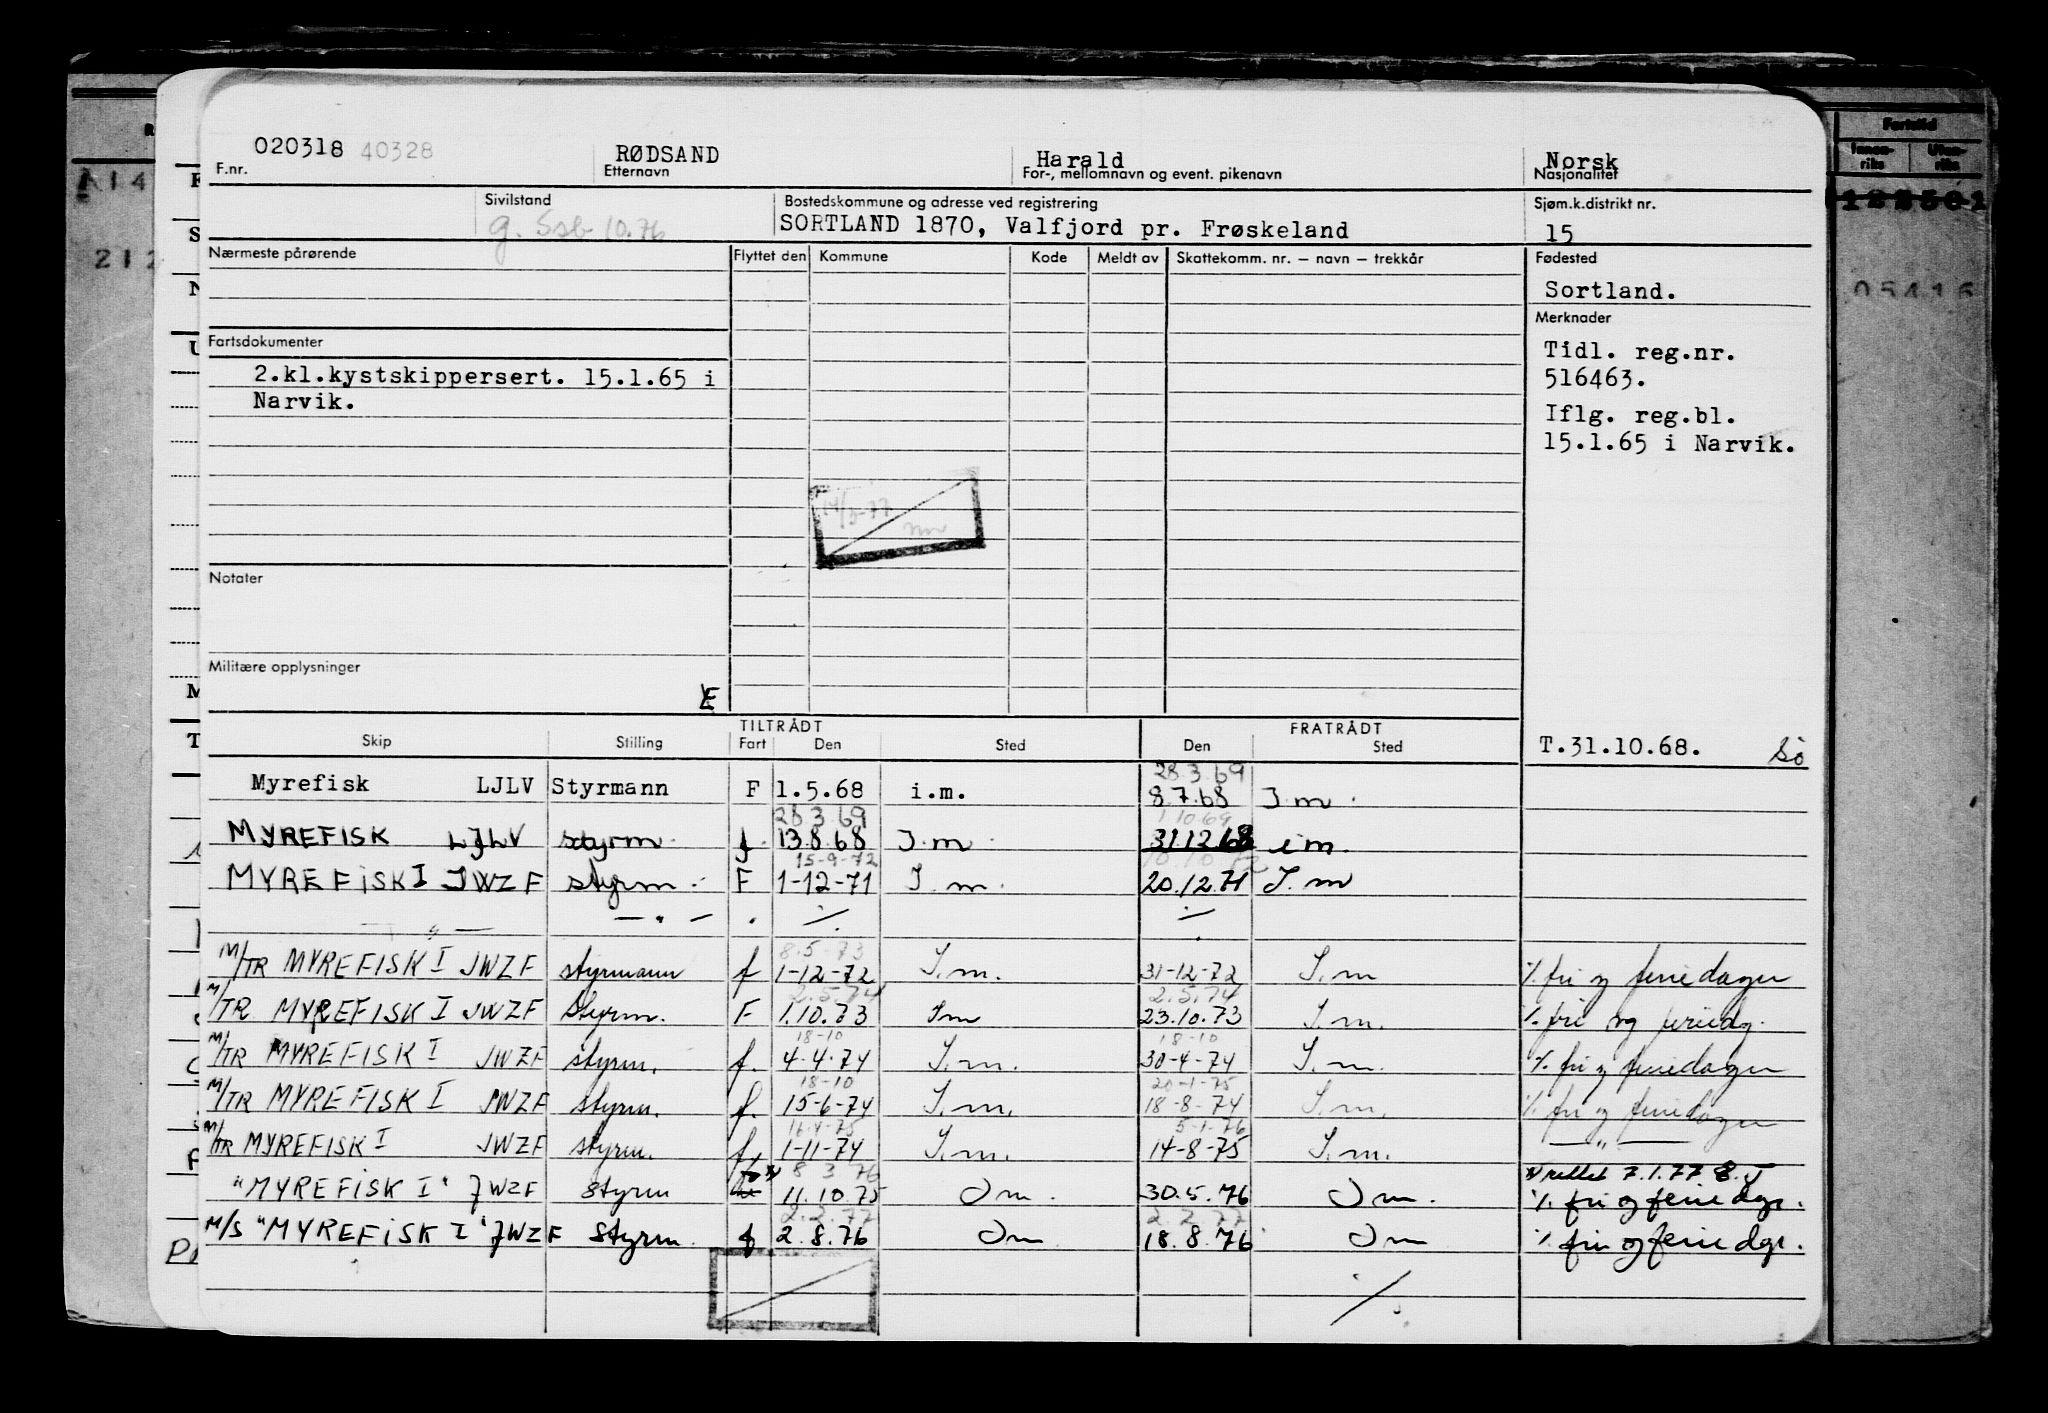 020318 40328 RØDSAND Harald Norsk
F.nr. Etternavn For-, mellomnavn og event. pikenavn Nasjonalitet
Sivilstand Bostedskommune og adresse ved registrering Sjøm.k.distrikt nr.
g. Ssb 10.76 SORTLAND 1870, Valfjord pr. Frøskeland 15
Nærmeste pårørende Flyttet den Kommune Kode Meldt av Skattekomm. nr. – navn – trekkår Fødested
Sortland.
Merknader
Fartsdokumenter
Tidl. reg.nr.
2.kl.kystskippersert. 15.1.65 i 516463.
Narvik. Iflg. reg.bl.
15.1.65 i Narvik.
Notater
Militære opplysninger
E
TILTRÅDT FRATRÅDT
Skip Stilling Fart Den Sted Den Sted T.31.10.68. Sö
28.3.69
Myrefisk LJLV Styrmann F 1.5.68 i.m. 8.7.68 I.m.
28.3.69 1.10.69
MYREFISK LJLV styrm. f. 13.8.68 I.m. 31.12.68 i m.
15-9-72 10.10.72
MYREFISK I JWZF styrm. F 1-12-71 I.m. 20.12.71 I.m
— " — — " —
8.5-73
M/TR MYREFISK I JWZF styrmann f 1-12-72 I.m. 31-12-72 I.m ·/. fri og feriedager
2.5.74 2.5.74
M/TR MYREFISK I JWZF Styrm. F 1.10.73 Im 23.10.73 I.m. ·/. fri og feriedg.
18-10 18-10
M/TR MYREFISK I JWZF styrm. f. 4-4-74 I.m. 30-4-74 I.m. ·/. fri og feriedager
18-10 20-1-75
M/TR MYREFISK I JWZF styrm. f. 15-6-74 I.m. 18-8-74 I.m. ·/. fri og feriedager
16.4-75 5-1-76
M/TR MYREFISK I JWZF styrm. f. 1-11-74 I.m. 14-8-75 I.m. — " —
8 3 76 rettet 7.1.77
"MYREFISK I" JWZF Styrm 11.10.75 Im 30.5.76 Im. ·/. fri og ferie dgr.
2.2.77 2.2.77
M/S "MYREFISK I" JWZF Styrm. f 2.8.76 Im 18.8.76 Im ·/. fri og ferie dgr.
Fartstid
Innen-riks Uten-riks